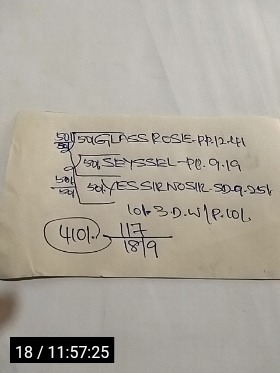 50/- 50/- GLASS POSIE-PP.12.41
50/-
50/- SEYSSEL-PP.9.19
50/- 50/- YESSIRNOSIR.SD.9.25/-
50/-
10/- 3.D.W/P.10/-
410/- 117
18/9
18 / 11:57:25